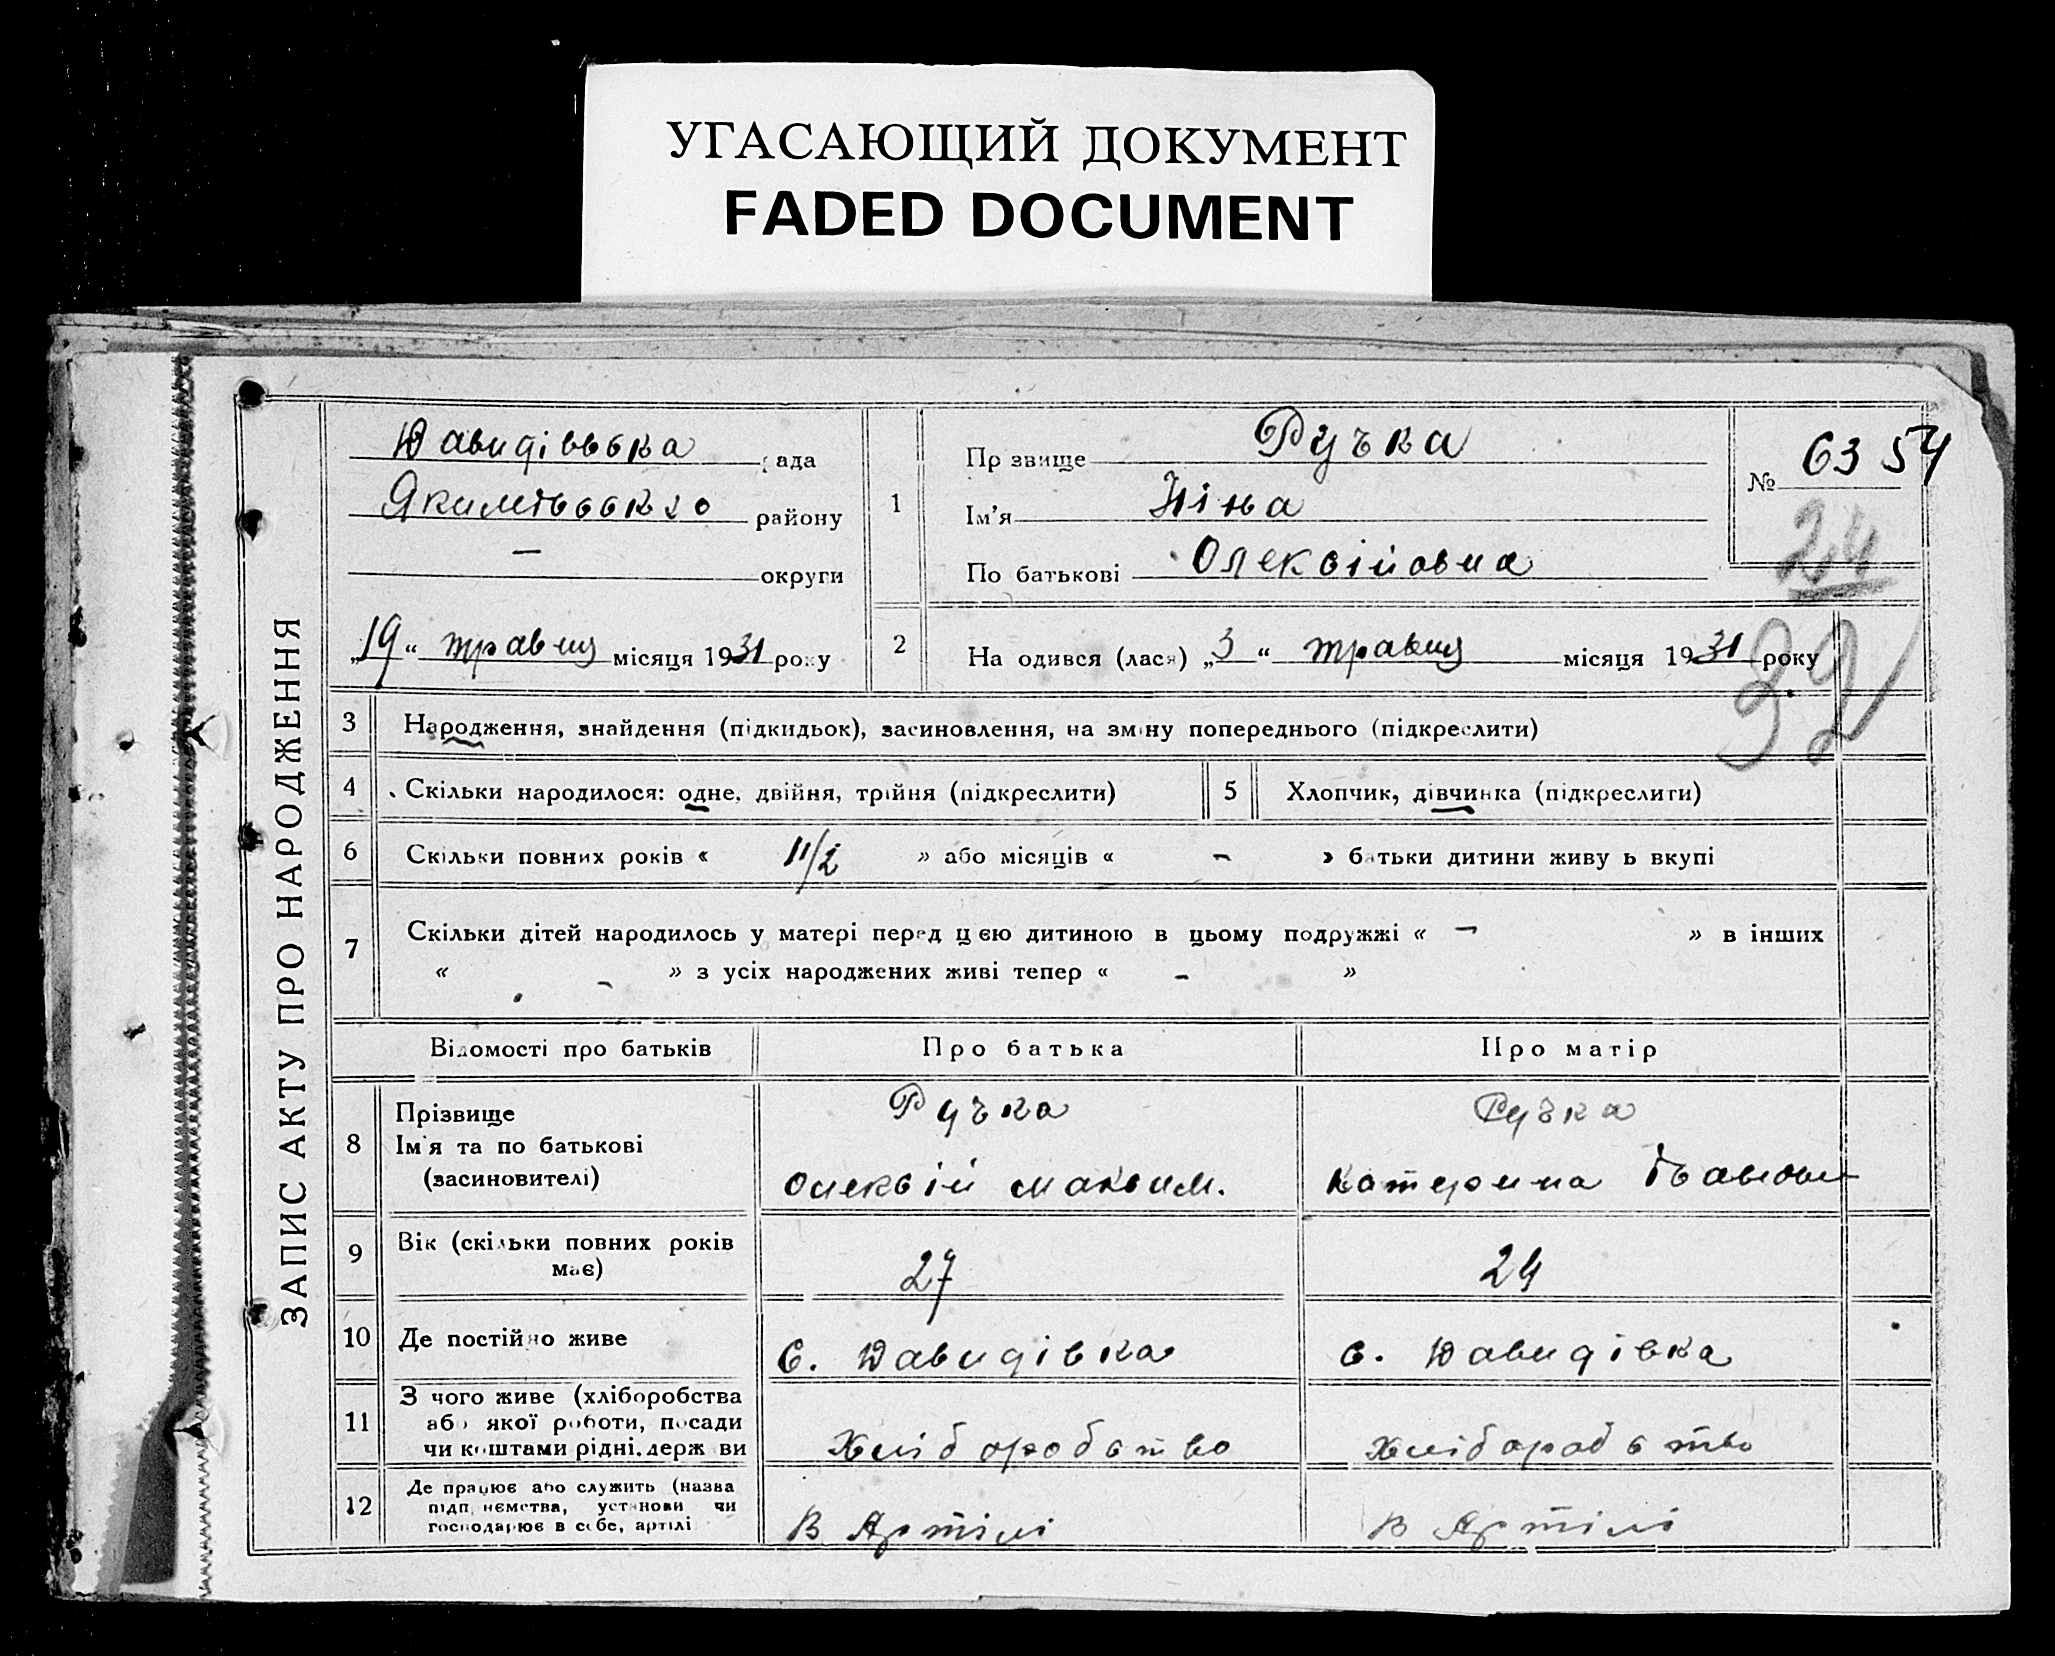 УГАСАЮЩИЙ ДОКУМЕНТ
FADED DOCUMENT
ЗАПИС АКТУ ПРО НАРОДЖЕННЯ
Давидівська рада
району
— округи
„19“ травня місяця 1931 року
1 Прзвище Ручка
Ім'я Ніна
По батькові Олексійовна
№ 63 54
24
32
2 На одився (лася) „3“ травня місяця 1931 року
3 Народження, знайдення (підкидьок), засиновлення, на зміну попереднього (підкреслити)
4 Скільки народилося: одне, двійня, трійня (підкреслити) 5 Хлопчик, дівчинка (підкреслити)
6 Скільки повних років « 1 1/2 » або місяців « - » батьки дитини живу ь вкупі
7 Скільки дітей народилось у матері перед цею дитиною в цьому подружжі « - » в інших
« - » з усіх народжених живі тепер « - »
Відомості про батьків Про батька Про матір
8 Прізвище Ручка Ручка
Ім'я та по батькові
(засиновителі) Олексій Максим. Катерина Іванов
9 Вік (скільки повних років
має) 27 24
10 Де постійно живе с. Давидівка с. Давидівка
11 З чого живе (хліборобства
або якої роботи, посади
чи коштами рідні. держ ви Хліборобство Хліборобство
12 Де працює або служить (назва
підп немства, установи чи
господарює в себе, артілі В Артілі В Артілі